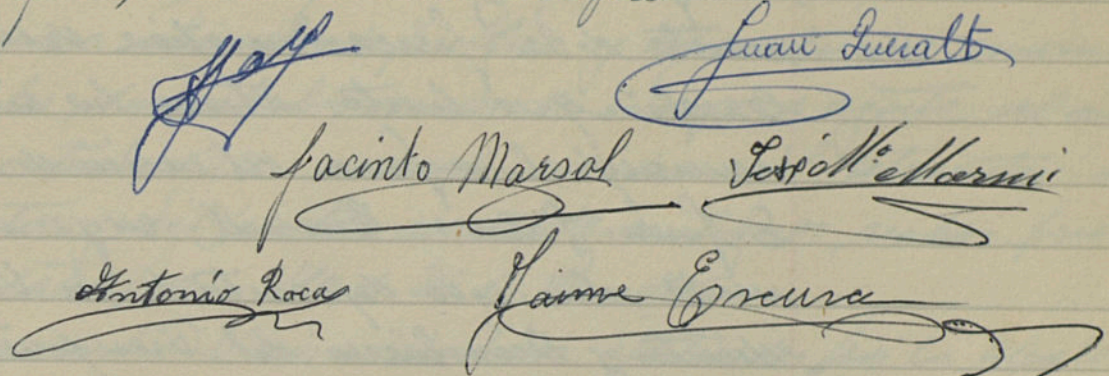 Juan Queralt
Jacinto Marsal José Mª Marsui
Antonio Roca Jaime Escura